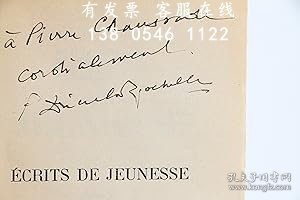 有发票 客服在线
138 0546 1122
à Pierre
cordialement.
P. Drieu la Rochelle
ÉCRITS DE JEUNESSE
孔夫子旧书网
www.kongfz.com